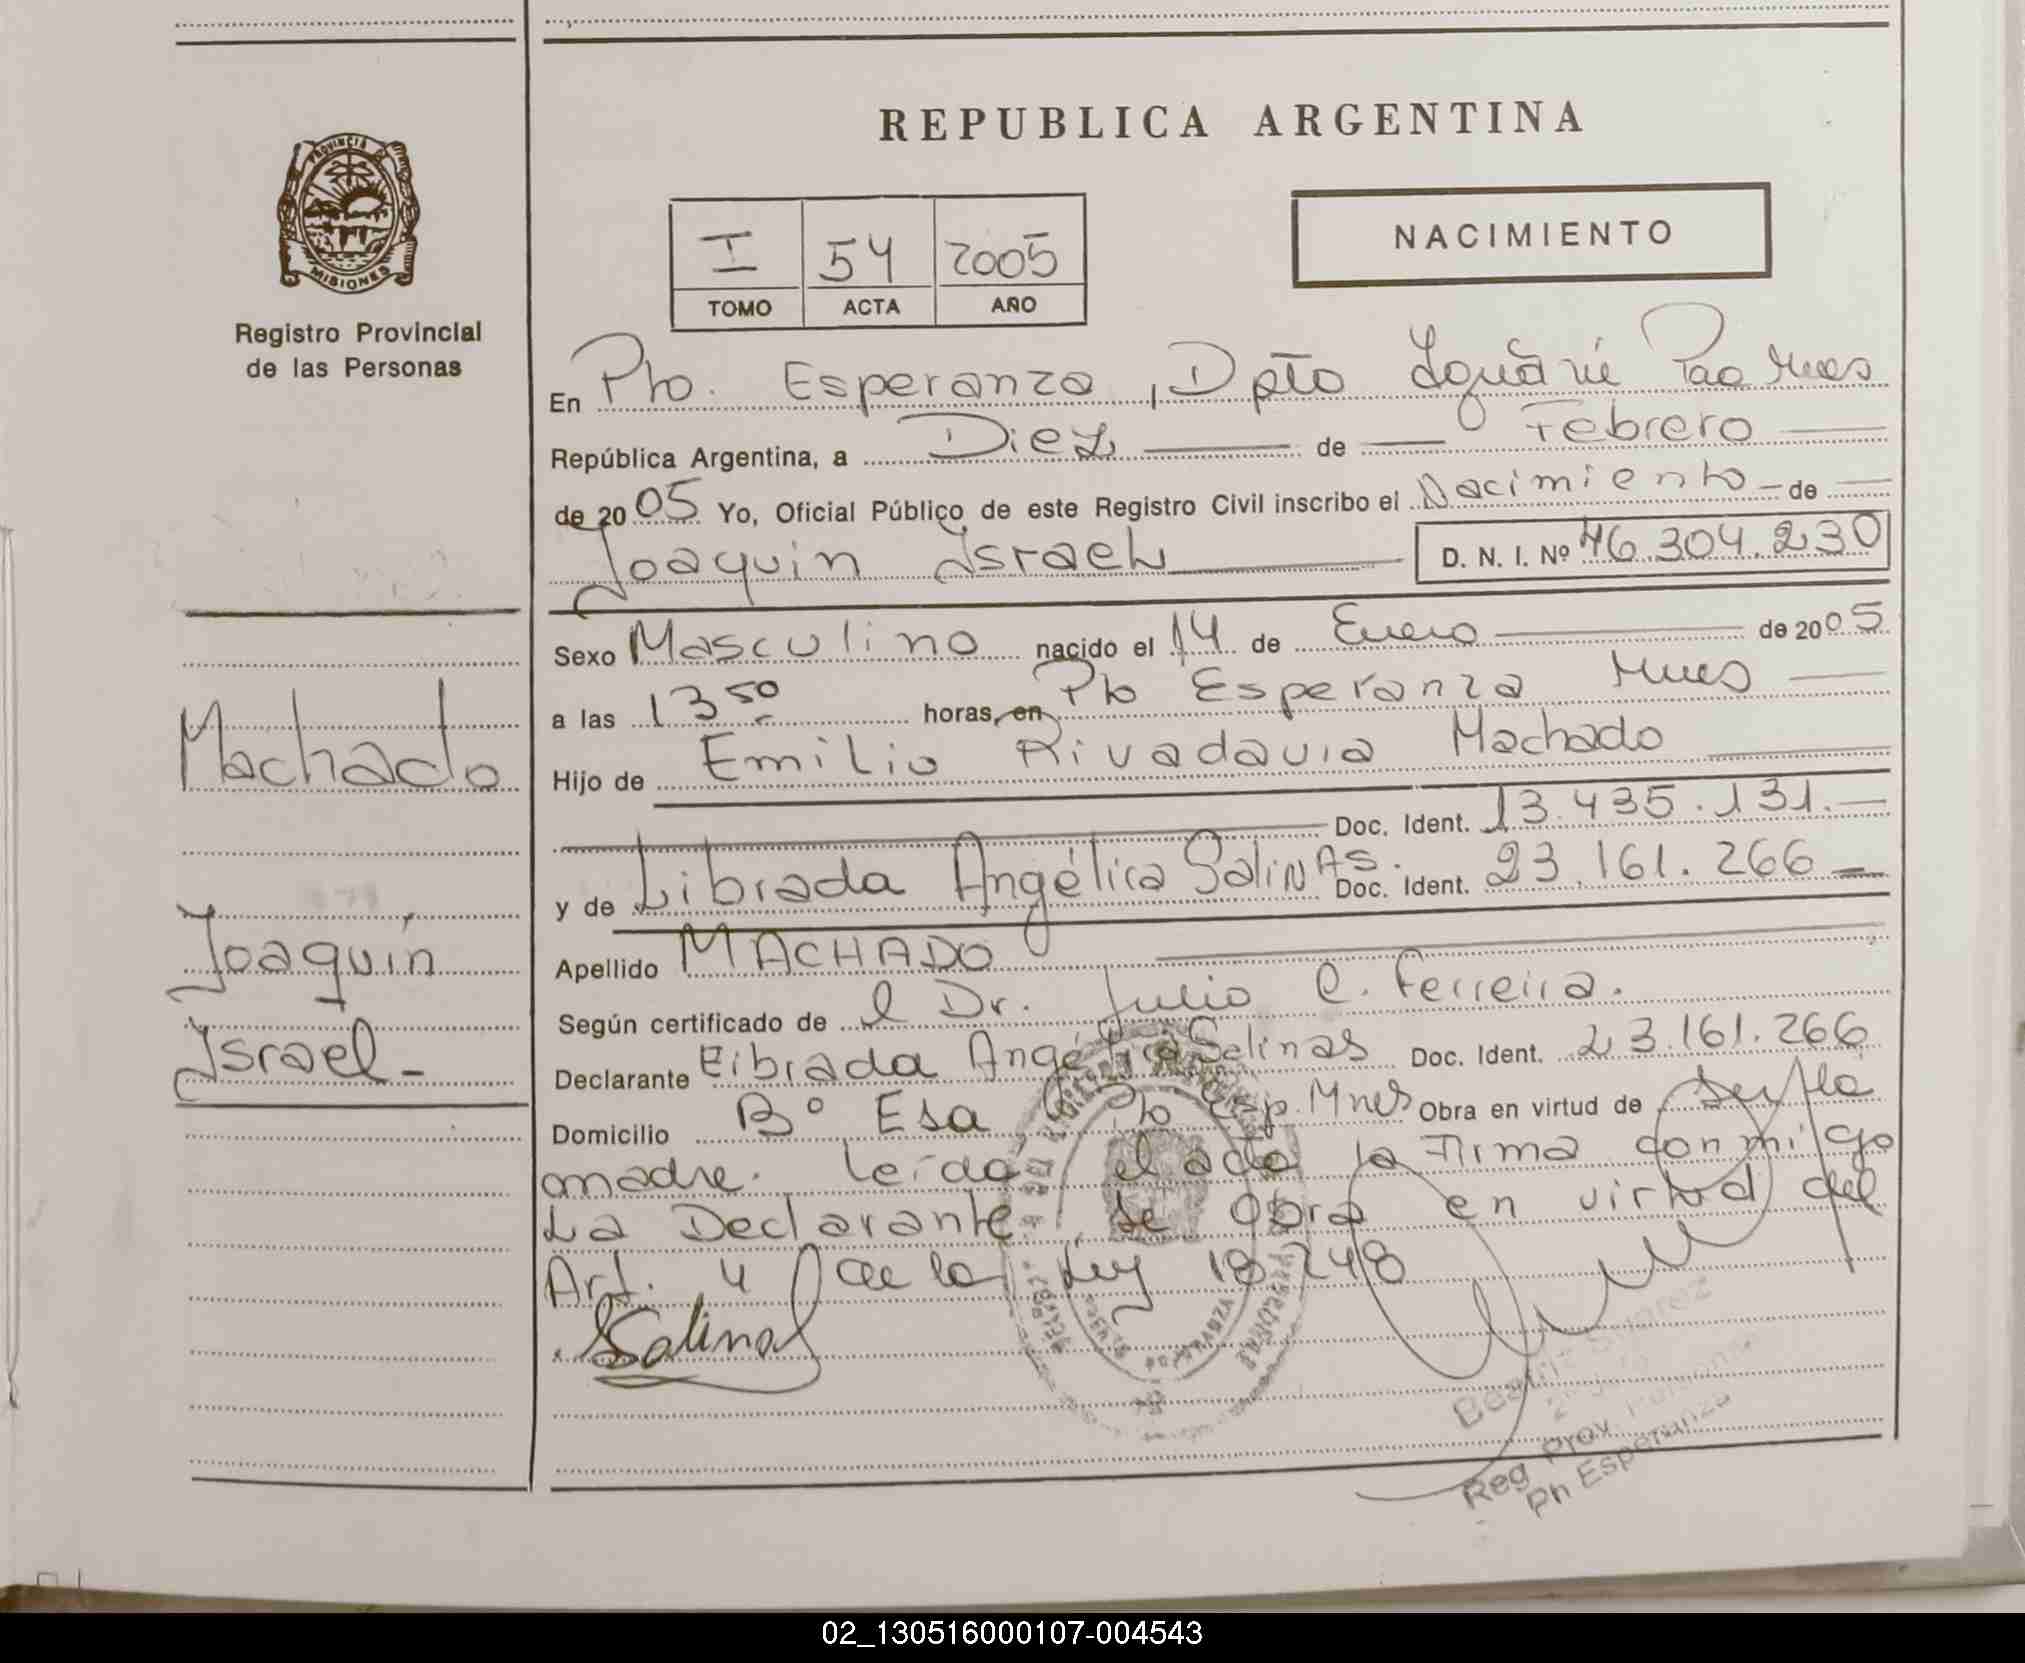 REPUBLICA ARGENTINA
PROVINCIA DE
MISIONES
Registro Provincial
de las Personas
I 54 2005
TOMO ACTA AÑO
NACIMIENTO
En Pto. Esperanza, Dpto Iguazú Mnes
República Argentina, a Diez de Febrero
de 2005 Yo, Oficial Público de este Registro Civil inscribo el Nacimiento de
Joaquin Israel D. N. I. Nº 46.304.230
Sexo Masculino nacido el 14 de Enero de 2005
a las 13 50 horas, en Pto Esperanza Mnes
Hijo de Emilio Rivadavia Machado
Doc. Ident. 13.435.131.
y de Librada Angélica Salinas. Doc. Ident. 23.161.266
Apellido MACHADO
Según certificado de el Dr. Julio C. Ferreira.
Declarante Librada Angélica Salinas Doc. Ident. 23.161.266
Domicilio Bº Esa Pto Esp. Mnes Obra en virtud de ser la
madre. Leida el acta la Firma conmigo
La Declarante, se obra en virtud del
Art. 4 de la Ley 18.248
Salinas
Machado
Joaquín
Israel
Beatriz Suarez
Reg Prov. Personas
Pto Esperanza
02_130516000107-004543